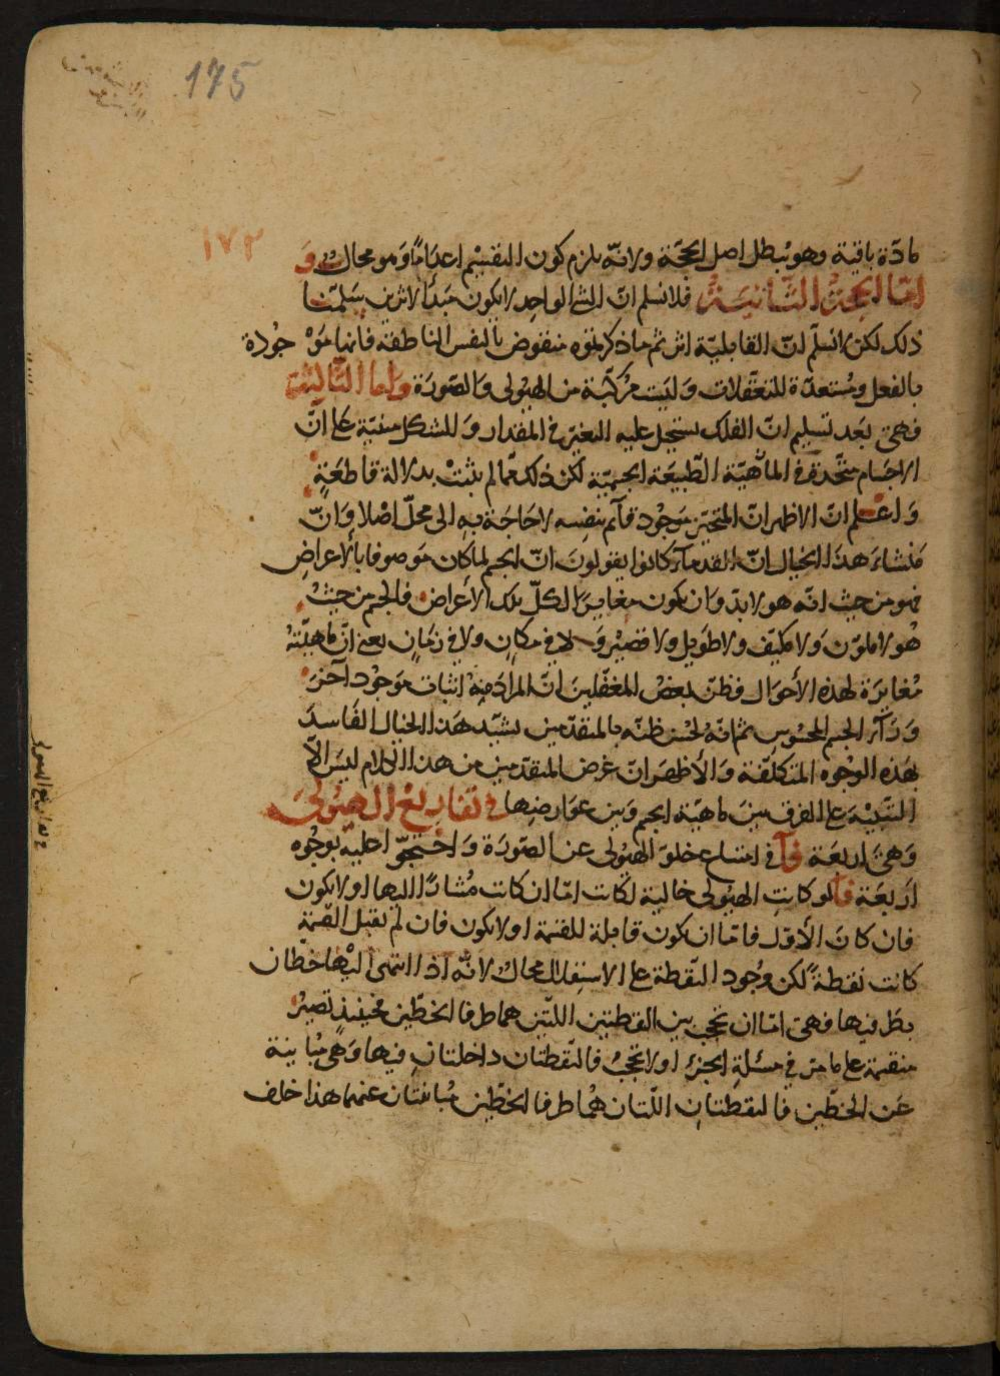 175
١٧٢
مادّة باقية وهو يبطل اصل الحجّة ولانّه يلزم كون التقسيم اعدامًا وهو محال و
امّا الحجّة الثّانية فلا نسلم انّ الشئ الواحد لا يكون مبدأ لاثرين سلمنا
ذلك لكن لا نسلّم انّ القابليّة اثر ثم ما ذكرتموه منقوض بالنفس الناطقة فانها موجودة
بالفعل ومستعدّة للتعقّلات وليست مركّبة من الهيولى والصّورة وامّا الثّالثة
فهى بعد تسليم انّ الفلك يستحيل عليه التغيّر فى المقدار والشكل مبنيّة على انّ
الاجسام متّحدة فى الماهيّة الطّبيعة الجسميّة لكن ذلك ممّا لم يثبت بدلالة قاطعةٍ
واعلم انّ الاظهر انّ المتحيّز موجود قائم بنفسه لا حاجة به الى محلّ اصلا وانّ
منشاء هذا الخيال انّ القدماء كانوا يقولون انّ الجسم لما كان موصوفا بالاعراض
فهو من حيث انّه هو لابدّ وان يكون مغايرا لكلّ تلك الأعراض فالجسم من حيث
هو لا ملوّن ولا مكيّف ولا طويل ولا قصير ولا فى مكانٍ ولا فى زمانٍ يعنى انّ ماهيّته
مغايرة لهذه الأحوال فظنّ بعض المغفّلين انّ المراد منه اثبات موجود آخر
وراء الجسم المحسوس ثم انّه لحسن ظنّه بالمتقدّمين يشيّد هذا الخيال الفاسد
بهذه الوجوه المتكلّفة والأظهر انّ غرض المتقدمين من هذا الكلام ليس الّا
التنبيه على الفرق بين ماهيّة الجسم وبين عوارضها فى تفاريع الهيولى
وهى اربعة آ فى امتناع خلوّ الهيولى عن الصّورة واحتجّوا عليه بوجوه
اربعة آ لو كانت الهيولى خالية لكانت امّا ان كانت مشارًا اليها او لا يكون
فان كان الأوّل فامّا ان يكون قابلة للقسمة او لا يكون فان لم تقبل القسمة
كانت نقطةً لكن وجود النّقطة على الاستقلال محال لانّه اذا انتهى اليها خطّان
بطرفيها فهى امّا ان تحجب بين النقطتين اللّتين هما طرفا الخطّين فحينئذٍ تصير
منقسمة على ما مرّ فى مسئلة الجزء او لا تحجب فالنّقطتان داخلتان فيها وهى مباينة
عن الخطّين فالنقطتان اللّتان هما طرفا الخطّين مباينتان عنهما هذا خلف